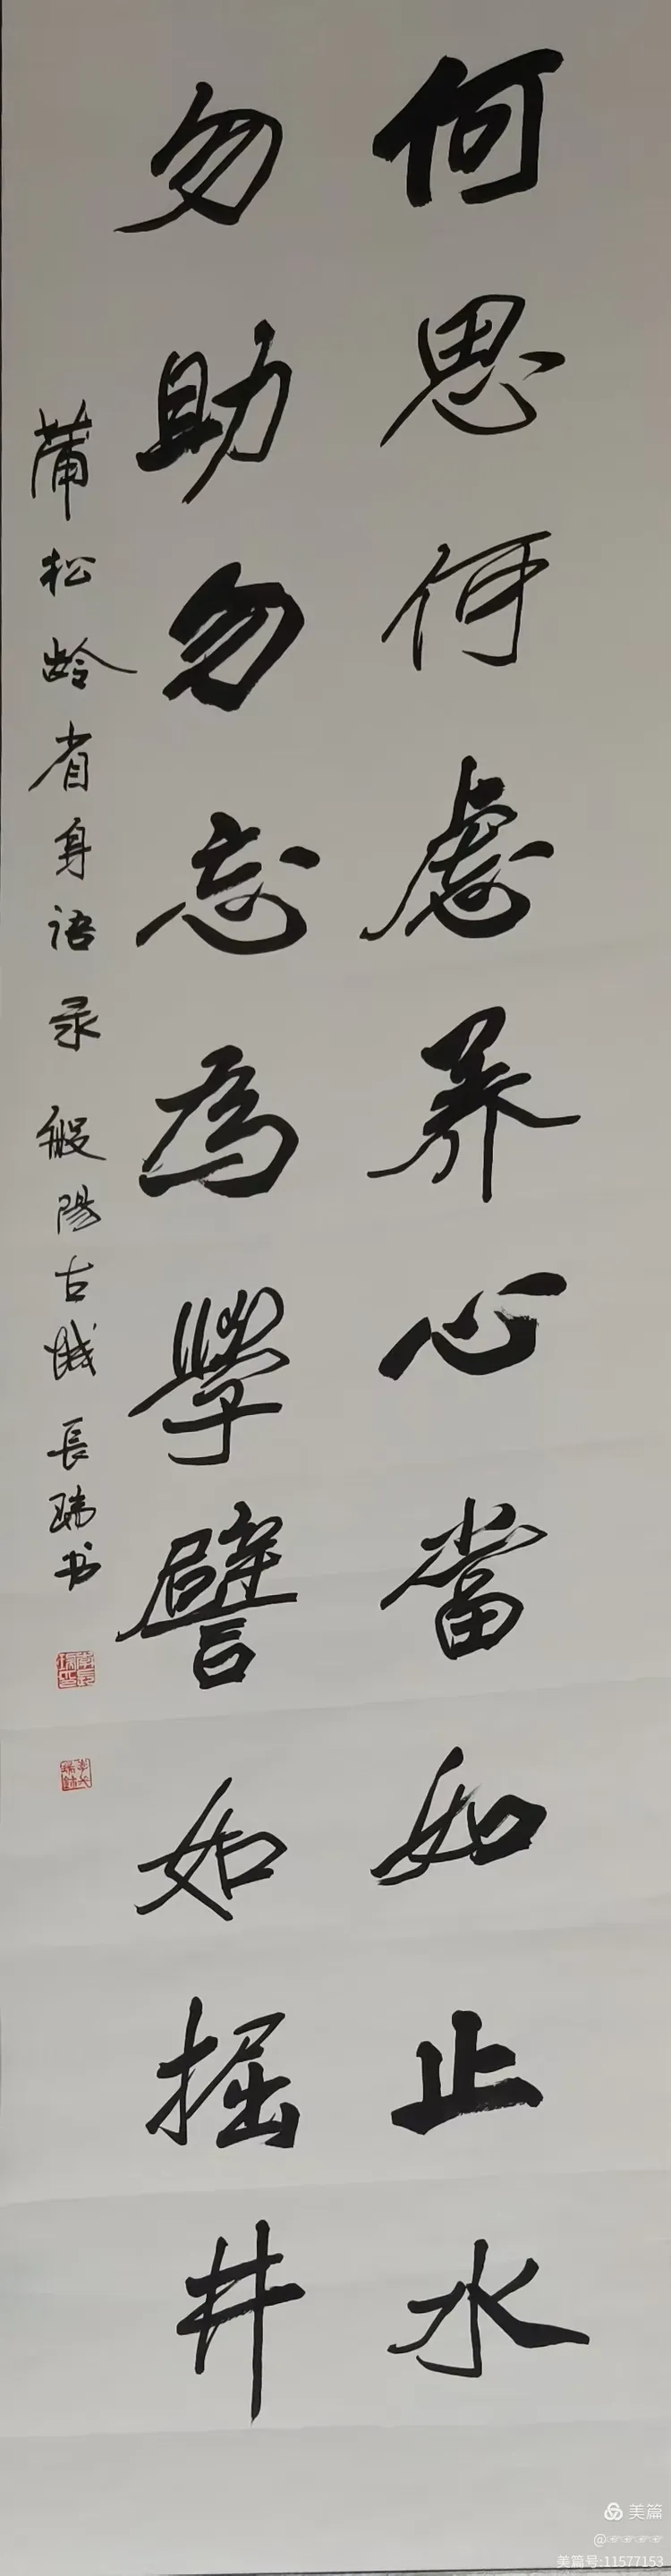 何思何慮养心當如止水
勿助勿忘為學譬如掘井
蒲松龄省身语录 般陽古城 長瑞书
美篇
美篇号:11577153